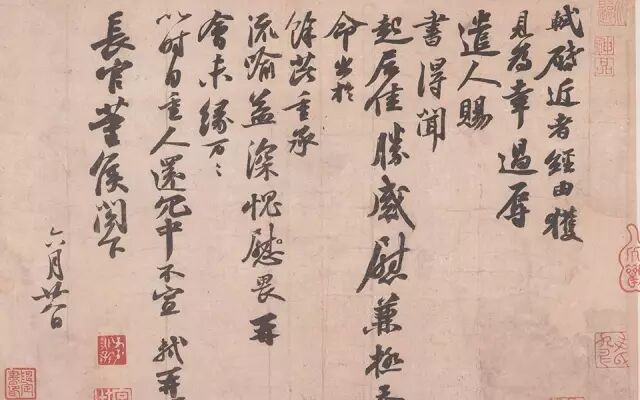 軾啟近者經由獲
見為幸過辱
遣人賜
書得聞
起居佳勝感慰兼極
命出於
餘芘重承
流喻益深愧慰畏再
會未緣万万
以時自重人還冗中不宣軾再
長官董侯閣下
六月廿八日